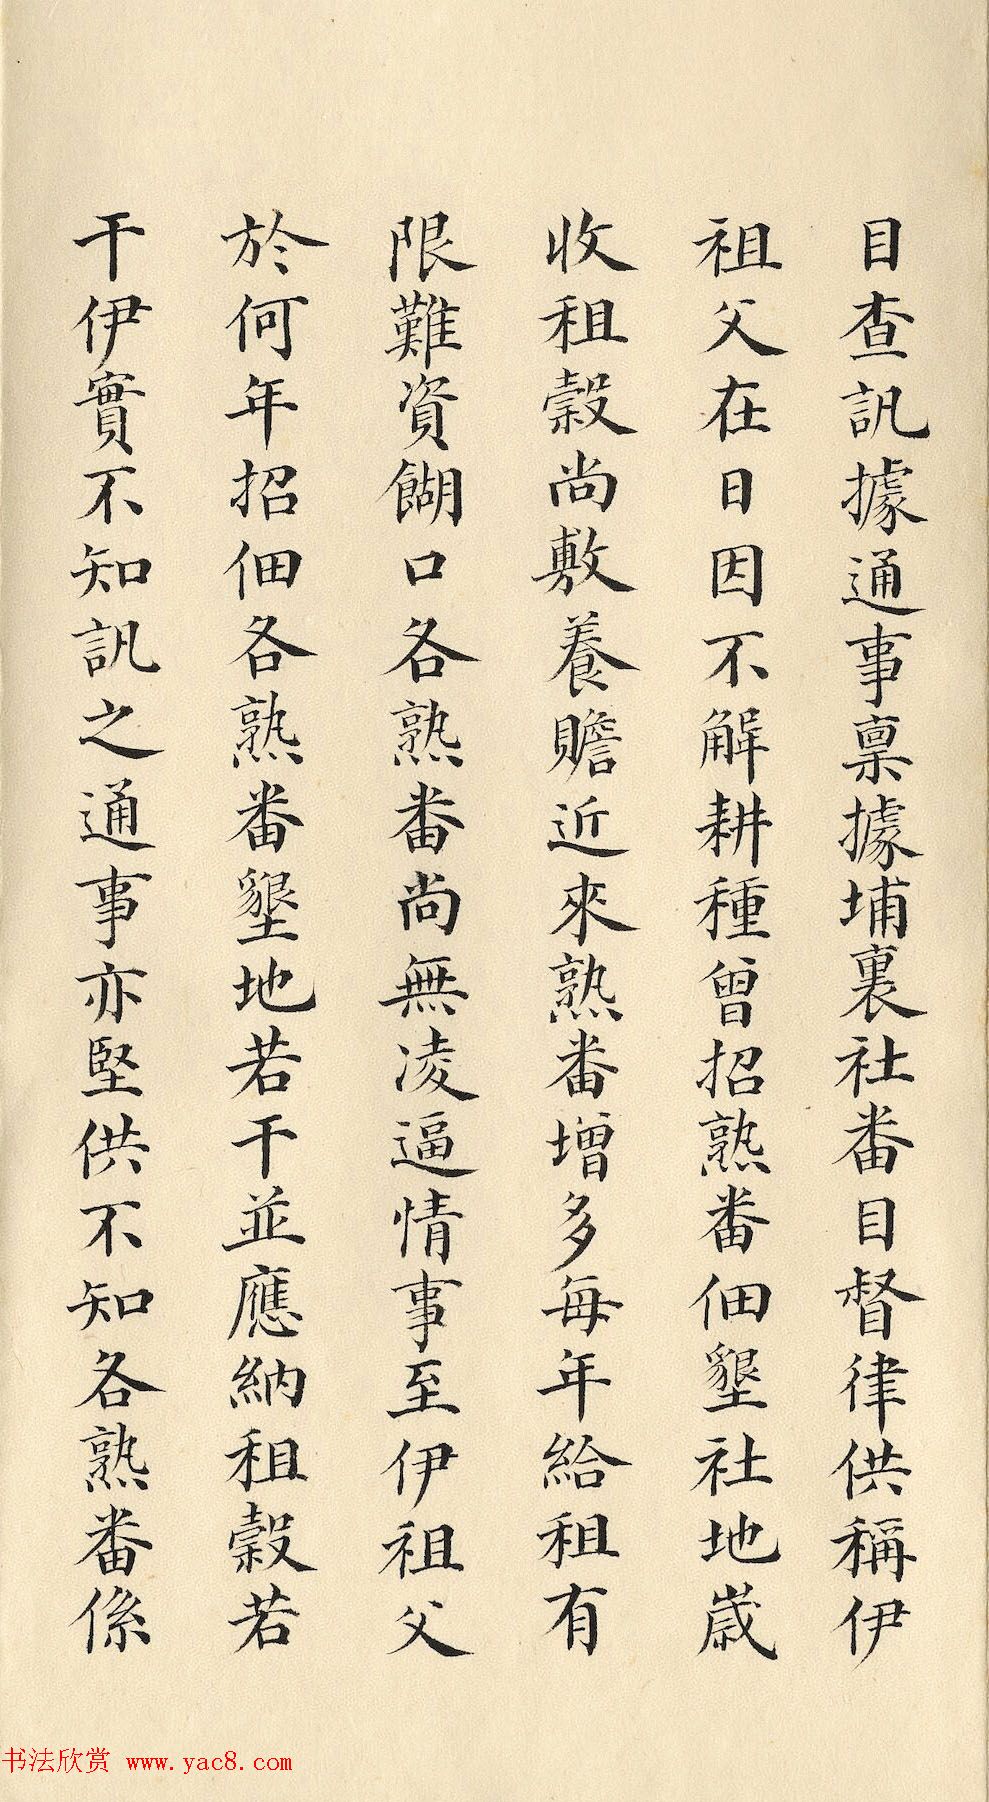 目查訊據通事禀據埔裏社番目督律供稱伊
祖父在日因不解耕種曾招熟番佃墾社地歲
收租穀尚敷養贍近來熟番增多每年給租有
限難資餬口各熟番尚無凌逼情事至伊祖父
於何年招佃各熟番墾地若干並應納租穀若
干伊實不知訊之通事亦堅供不知各熟番係
书法欣赏 www.yac8.com